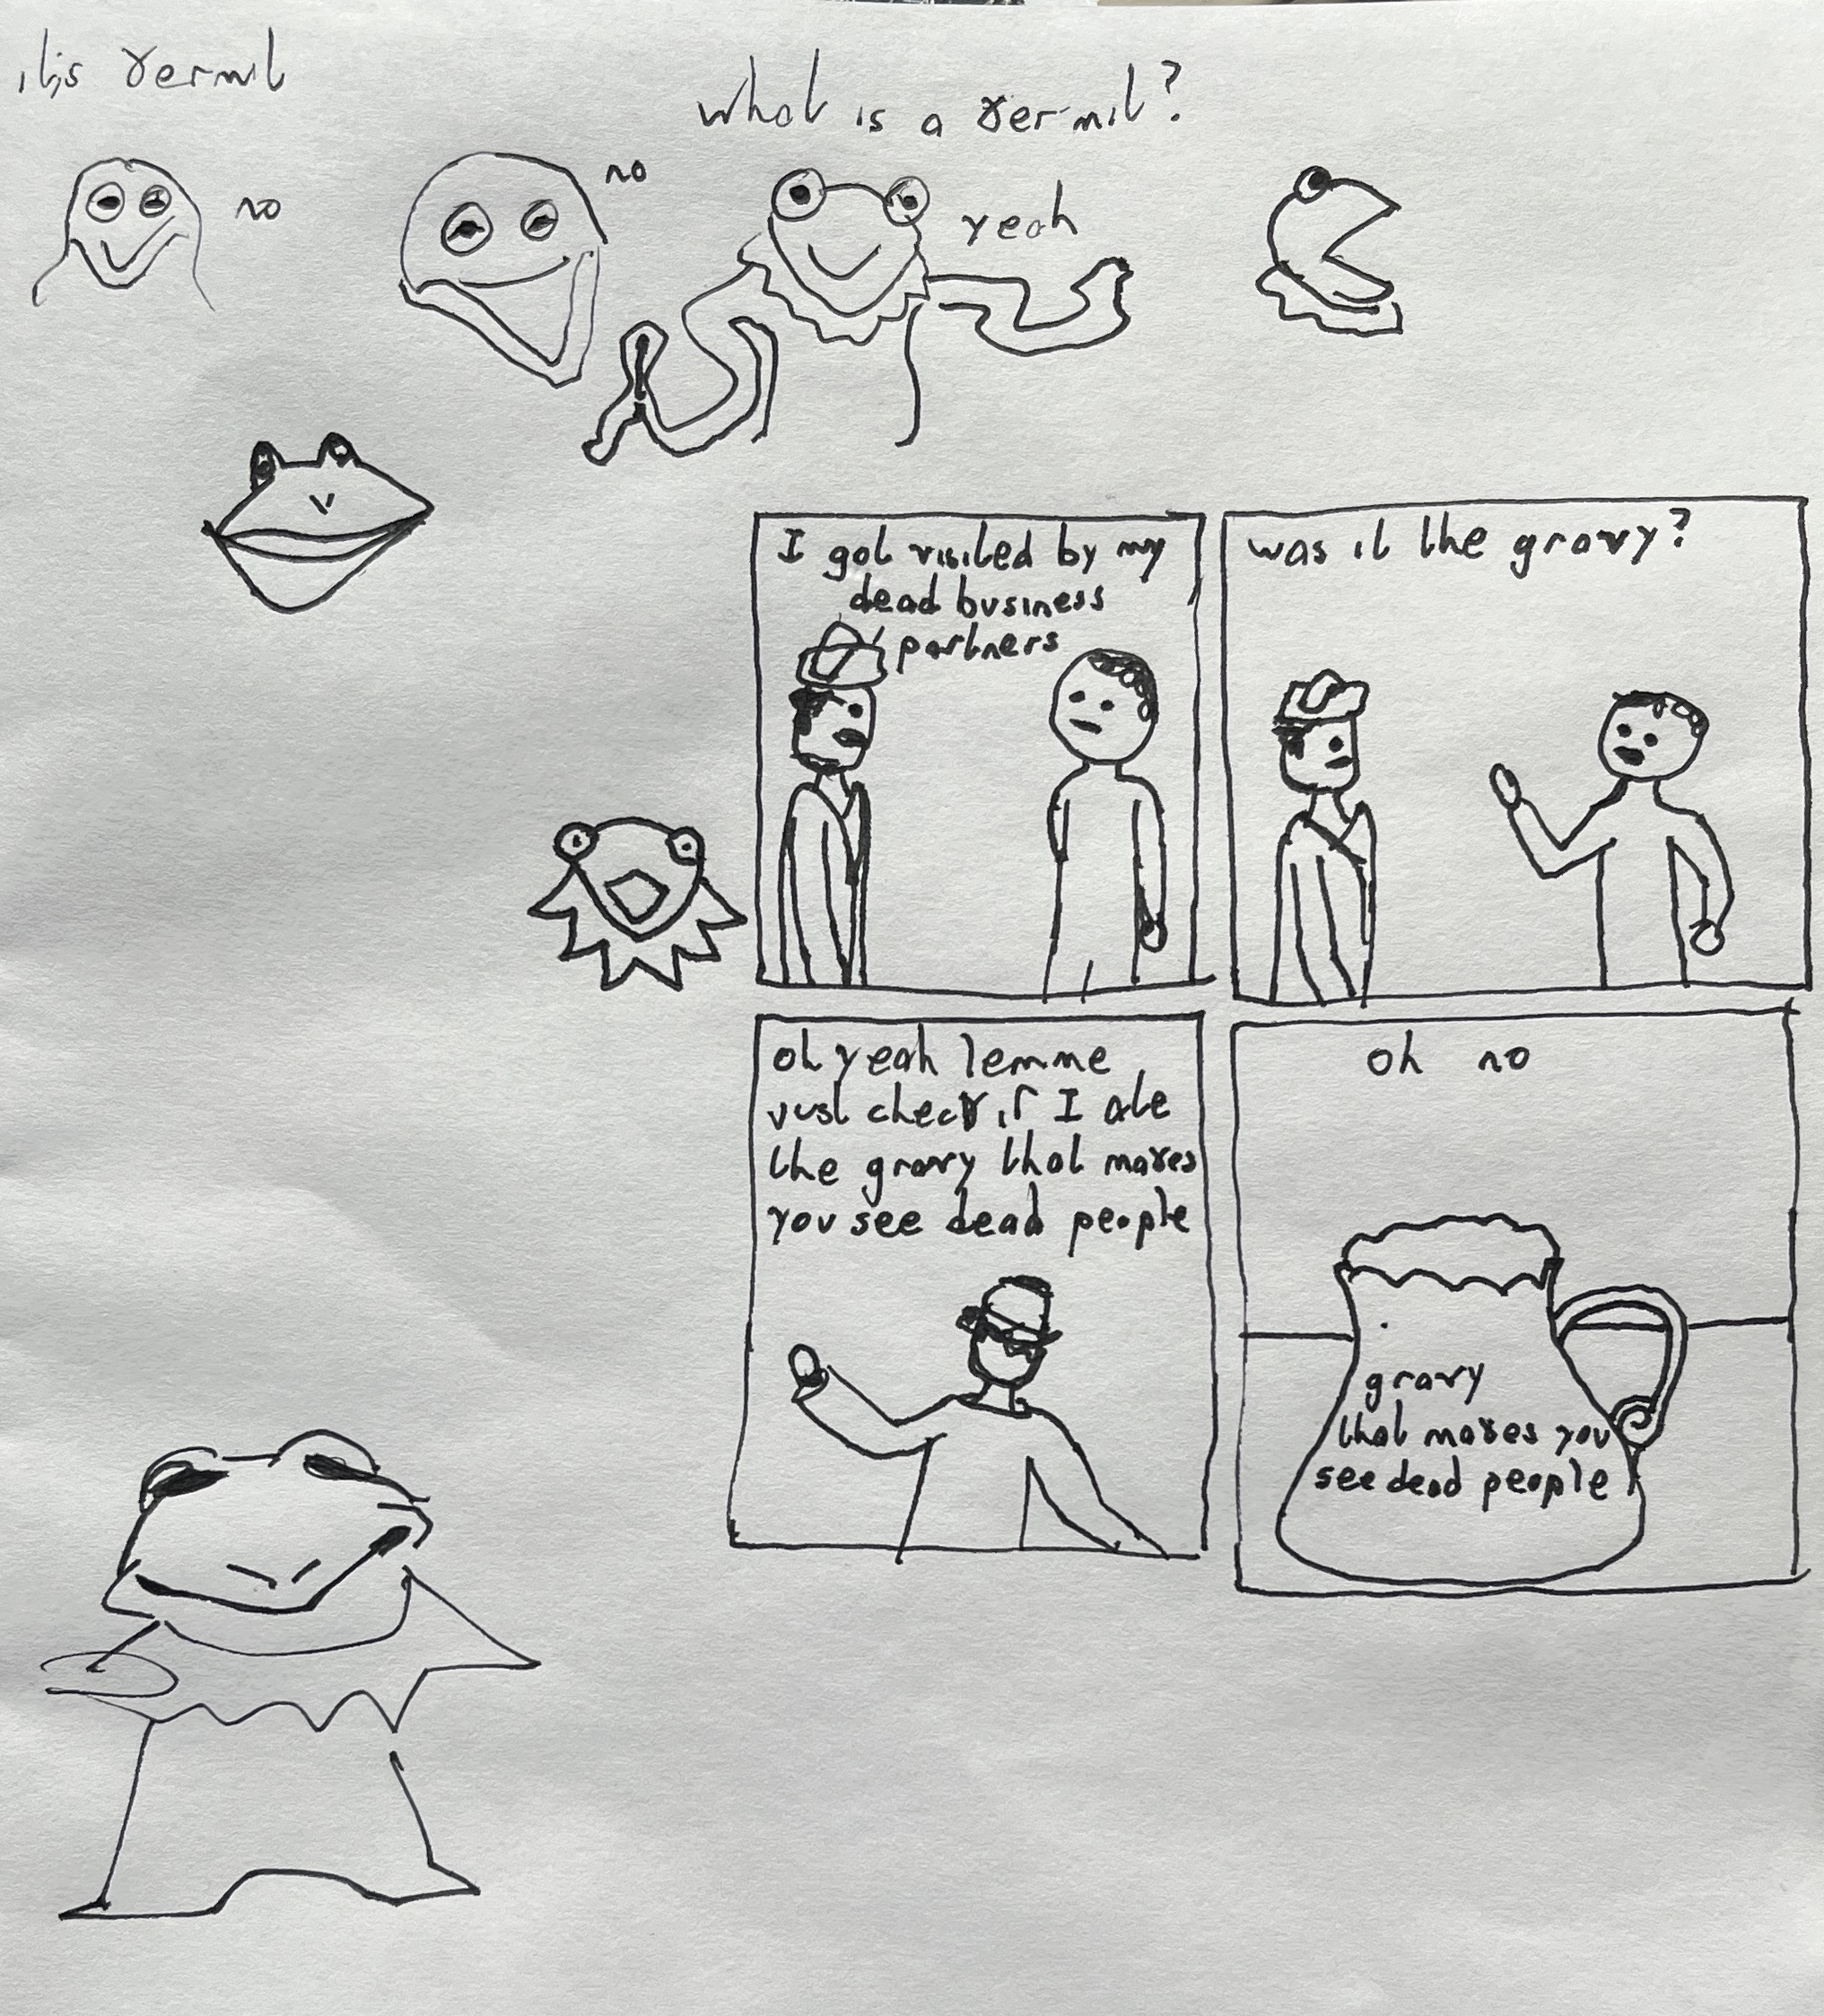 it's kermit
what is a kermit?
no
no
yeah
I got visited by my
dead business
partners
was it the gravy?
oh yeah lemme
just check if I ate
the gravy that makes
you see dead people
oh no
gravy
that makes you
see dead people